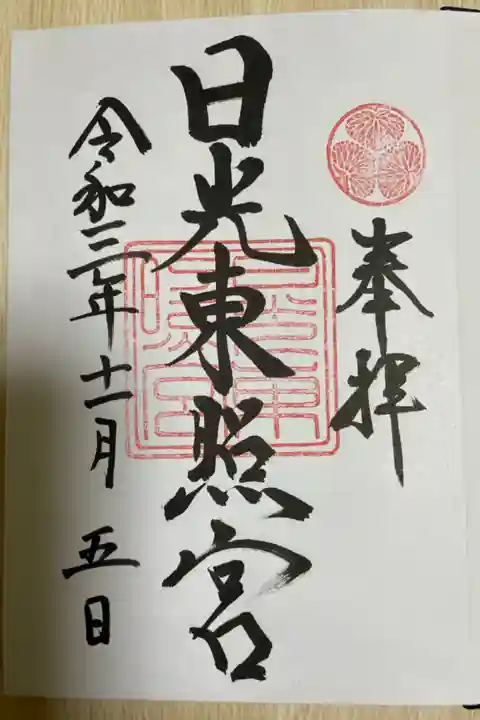 奉拝
日光東照宮
令和三年十一月五日